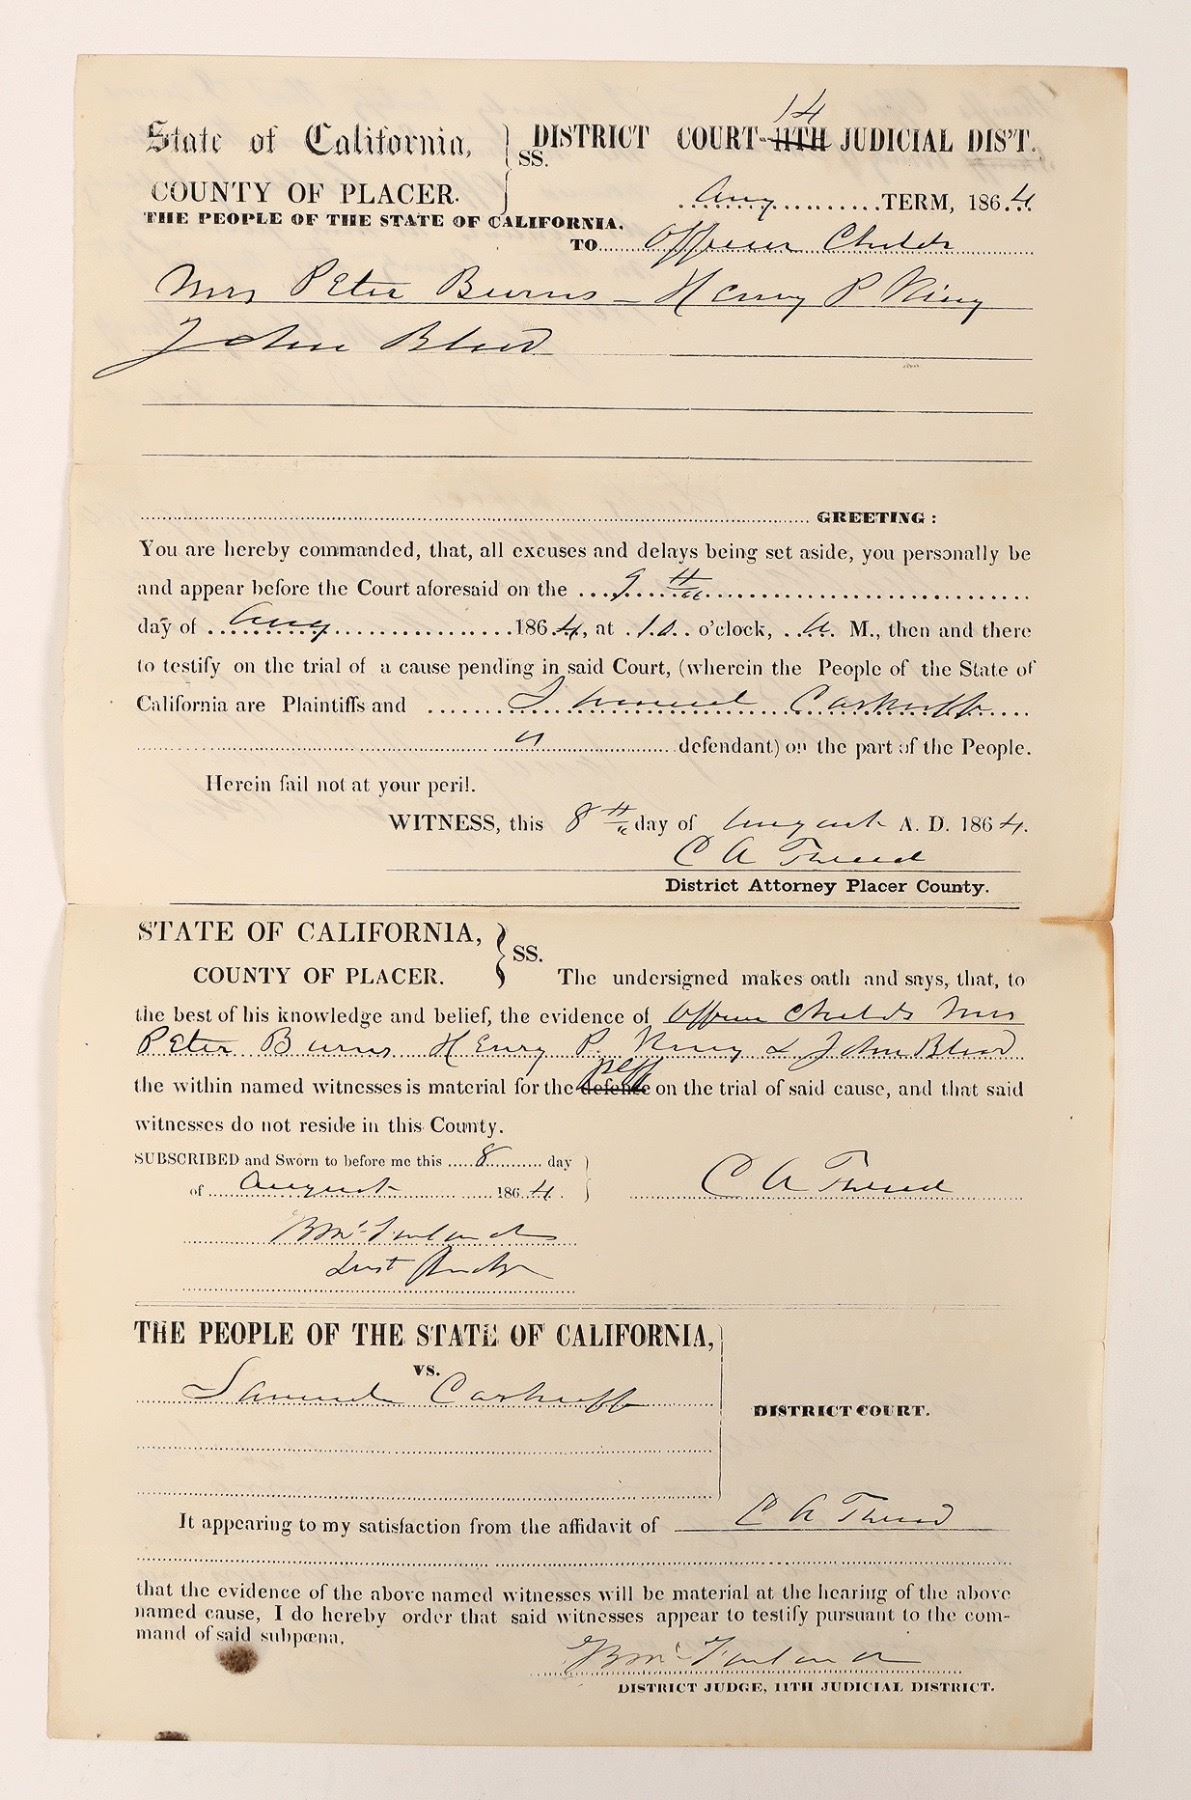 State of California, } SS. DISTRICT COURT-11TH 14 JUDICIAL DIS'T.
COUNTY OF PLACER. Aug TERM, 1864.
THE PEOPLE OF THE STATE OF CALIFORNIA.
TO Officer Childs
Mrs Peter Burns - Henry P King
John Blood
GREETING:
You are hereby commanded, that, all excuses and delays being set aside, you personally be
and appear before the Court aforesaid on the 9th
day of Aug 1864, at 10 o'clock, A. M., then and there
to testify on the trial of a cause pending in said Court, (wherein the People of the State of
California are Plaintiffs and Samuel Caskuff
defendant) on the part of the People.
Herein fail not at your peril.
WITNESS, this 8th day of August A. D. 1864.
C A Tweed
District Attorney Placer County.
STATE OF CALIFORNIA, } SS.
COUNTY OF PLACER. The undersigned makes oath and says, that, to
the best of his knowledge and belief, the evidence of Officer Childs Mrs
Peter Burns Henry P. King & John Blood
the within named witnesses is material for the defense plff on the trial of said cause, and that said
witnesses do not reside in this County.
SUBSCRIBED and Sworn to before me this 8 day
of August 1864. C A Tweed
B F Mc Farland
Dist Judge
THE PEOPLE OF THE STATE OF CALIFORNIA,
vs.
Samuel Caskuff
DISTRICT COURT.
It appearing to my satisfaction from the affidavit of C A Tweed
that the evidence of the above named witnesses will be material at the hearing of the above
named cause, I do hereby order that said witnesses appear to testify pursuant to the com-
mand of said subpœna.
Mc Farland
DISTRICT JUDGE, 11TH JUDICIAL DISTRICT.